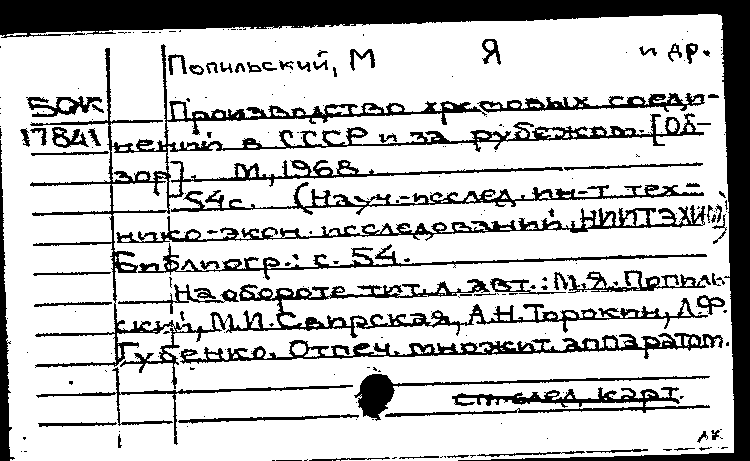 Попильский, М Я и др.
БОЖ
Производство хромовых соеди-
17841
нений в СССР и за рубежом. [Об-
зор]. М., 1968.
54с. (Науч.-исслед. ин-т тех-
нико-экон. исследований, НИИТЭХИМ)
Библиогр.: с. 54.
На обороте тит. л. авт.: М.Я. Попиль-
ский, М.И. Свирская, А.Н. Торокин, Л.Ф.
Губенко. Отпеч. множит. аппаратом.
см. след. карт.